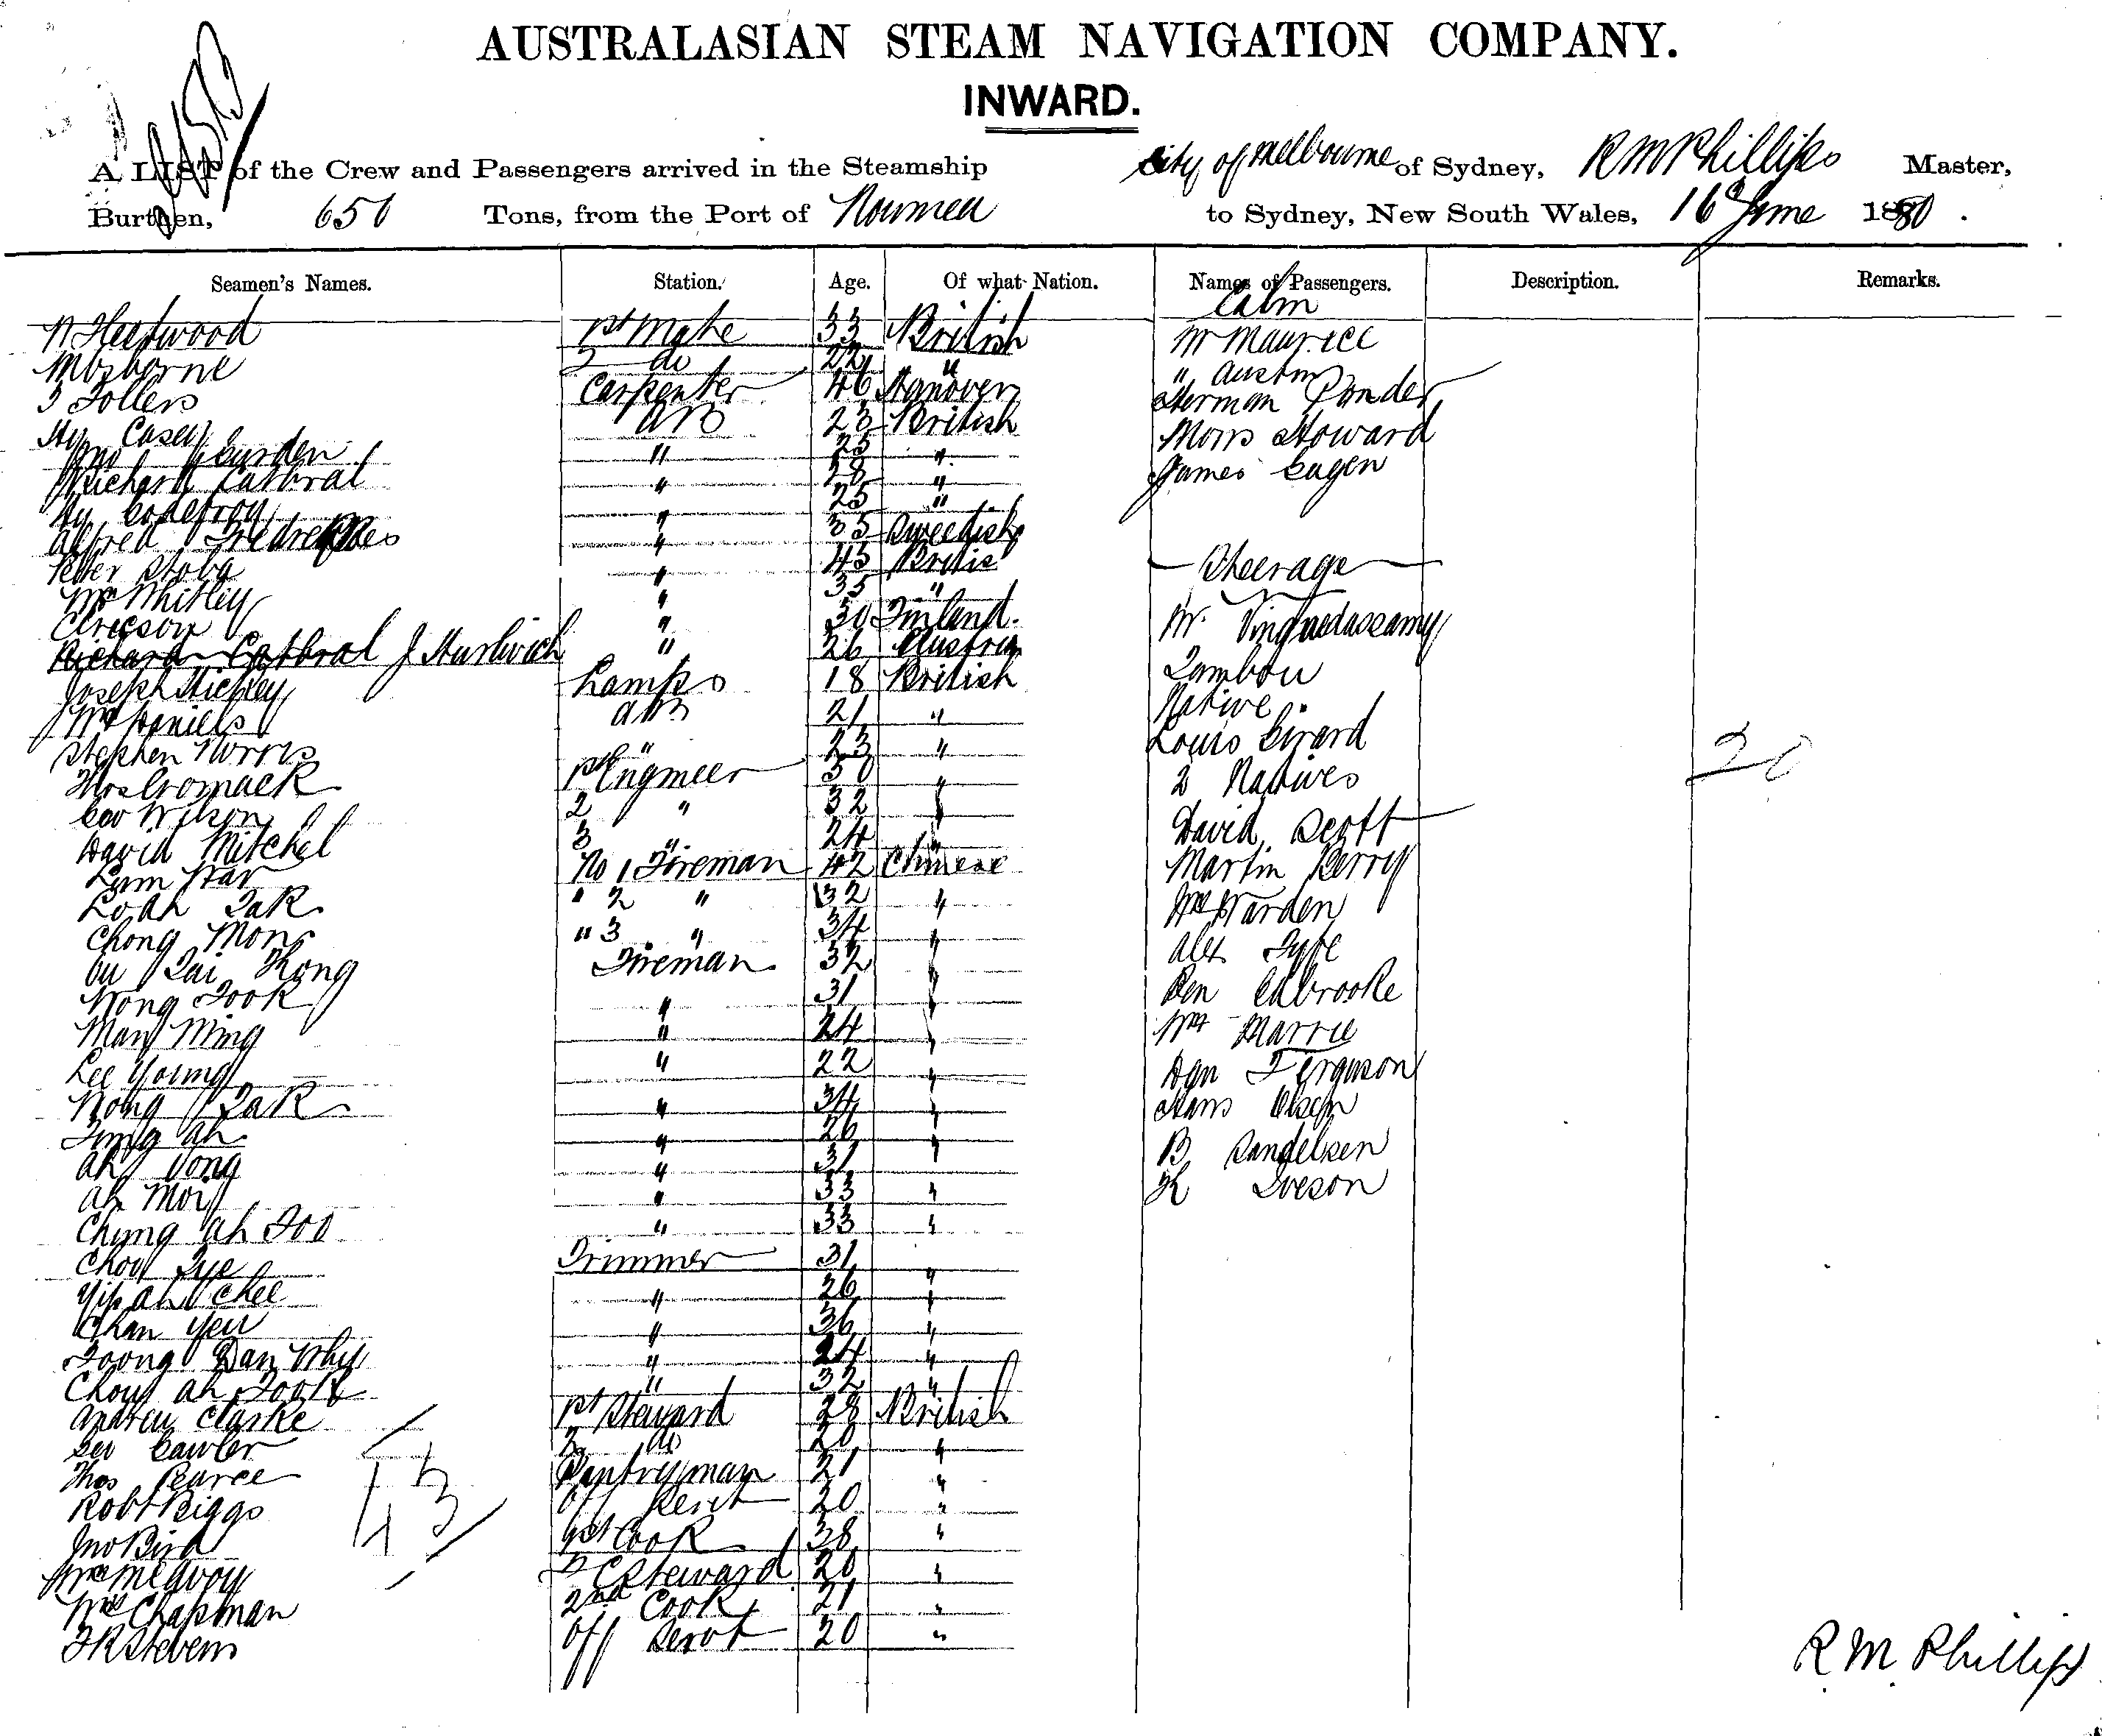 AUSTRALASIAN STEAM NAVIGATION COMPANY.
INWARD.
A LIST of the Crew and Passengers arrived in the Steamship City of Melbourne of Sydney, R M Phillips Master,
Burthen, 650 Tons, from the Port of Noumea to Sydney, New South Wales, 16 June 1880.
Seamen's Names. Station. Age. Of what Nation. Names of Passengers. Description. Remarks.
Cabin
N Fleetwood 1st Mate 33 British Mr Maurice
M Osborne 2 do 22 " " Austin
J Tollers Carpenter 46 Hanover Herman Ponder
Hy Casey AB 23 British Mons Howard
Jno Burden " 25 " James Eagen
Richard Catbral " 28 "
Hy Godefroy " 25 "
Alfred " 35 Swedish
Peter " 45 Britis Steerage
Wm Whitley " 35 "
Ericson " 30 Finland. Mr.
Richard Catbral J " 26 Austria Tambou
Joseph Hickey Lamps 18 British Native
Wm Daniels AB 21 " Louis Girard
Stephen Norris " 23 " 2 Natives
Thos Cromack 1st Engineer 30 "
Geo Wilson 2 " 32 " David Scott
David Mitchel 3 " 24 "
No 1 Fireman 42 Chinese Martin Berry
Loah Tak " 2 " 32 " Wm Warden
Chong Mong " 3 " 34 " Alex Fyfe
Ou Tai Thong Fireman 32 " Ben
Wong Fook " 31 "
Man Ming " 24 " Wm Marrie
Lee Young " 22 " Dan Ferguson
Wong Tak " 34 " Hans Olsen
Fung Ah " 26 "
Ah Vong " 31 " B Randelsen
Ah Moi " 33 " K Iveson
Chung Ah Foo " 33 "
Chow Tye Trimmer 31 "
Yip Ah Chee " 26 "
Chan Yew " 36 "
Foong Dan Why " 24 "
Chow Ah Fook " 32 "
Andrew Clarke 1st Steward 28 British
Geo Cawler 2 do 20 "
Thos Pearce Pantryman 21 "
Robt Biggs Off Servt 20 "
Jno Bird 1st Cook 38 "
Wm McAvoy Steward 20 "
Wm Chapman 2nd Cook 21 "
F R Stevens Off Servt 20 "
43
20
R M Phillips